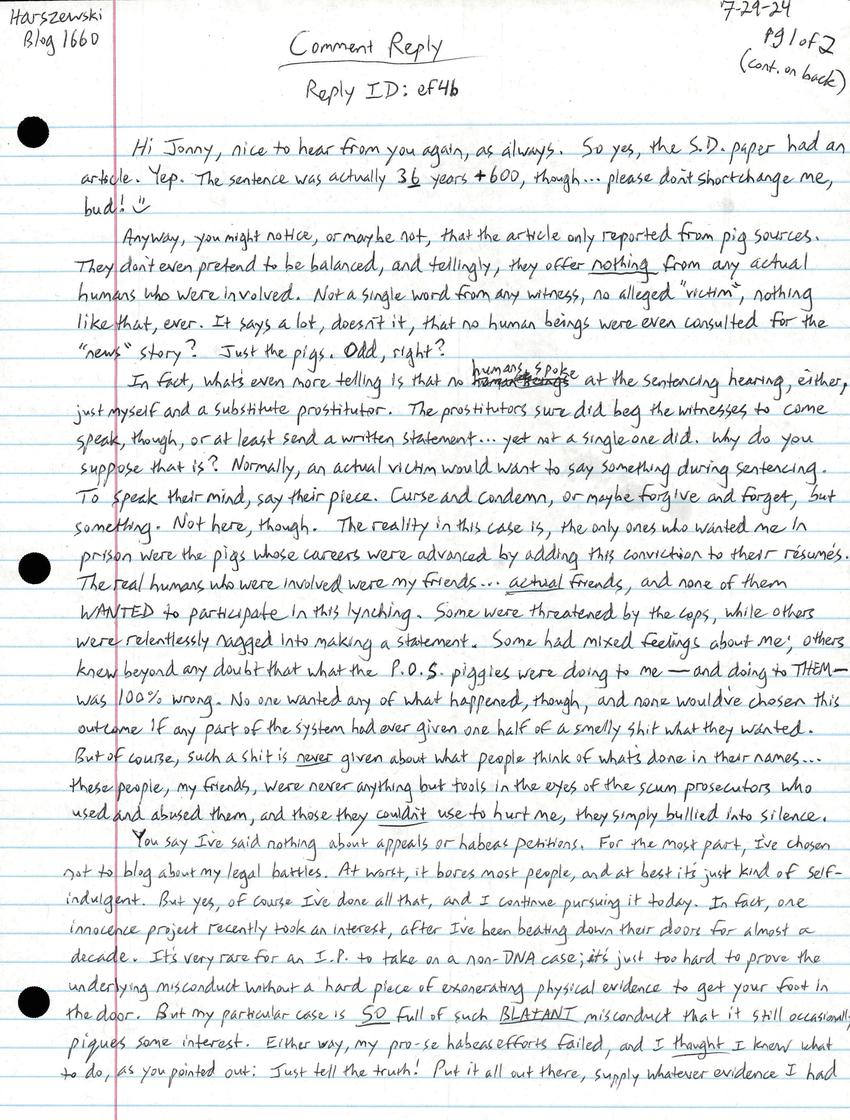 Harszewski
Blog 1660
7-29-24
Pg 1 of 2
(cont. on back)
Comment Reply
Reply ID: ef4b
Hi Jonny, nice to hear from you again, as always. So yes, the S.D. paper had an
article. Yep. The sentence was actually 36 years +600, though... please don't shortchange me,
bud! :)
Anyway, you might notice, or maybe not, that the article only reported from pig sources.
They don't even pretend to be balanced, and tellingly, they offer nothing from any actual
humans who were involved. Not a single word from any witness, no alleged "victim", nothing
like that, ever. It says a lot, doesn't it, that no human beings were even consulted for the
"news" story? Just the pigs. Odd, right?
In fact, what's even more telling is that no humans spoke at the sentencing hearing, either,
just myself and a substitute prostitutor. The prostitutors sure did beg the witnesses to come
speak, though, or at least send a written statement... yet not a single one did. Why do you
suppose that is? Normally, an actual victim would want to say something during sentencing.
To speak their mind, say their piece. Curse and condemn, or maybe forgive and forget, but
something. Not here, though. The reality in this case is, the only ones who wanted me in
prison were the pigs whose careers were advanced by adding this conviction to their résumés.
The real humans who were involved were my friends... actual friends, and none of them
WANTED to participate in this lynching. Some were threatened by the cops, while others
were relentlessly nagged into making a statement. Some had mixed feelings about me; others
knew beyond any doubt that what the P.O.S. piggies were doing to me — and doing to THEM —
was 100% wrong. No one wanted any of what happened, though, and none would've chosen this
outcome if any part of the system had ever given one half of a smelly shit what they wanted.
But of course, such a shit is never given about what people think of what's done in their names...
these people, my friends, were never anything but tools in the eyes of the scum prosecutors who
used and abused them, and those they couldn't use to hurt me, they simply bullied into silence.
You say I've said nothing about appeals or habeas petitions. For the most part, I've chosen
not to blog about my legal battles. At worst, it bores most people, and at best it's just kind of self-
indulgent. But yes, of course I've done all that, and I continue pursuing it today. In fact, one
innocence project recently took an interest, after I've been beating down their doors for almost a
decade. It's very rare for an I.P. to take on a non-DNA case; it's just too hard to prove the
underlying misconduct without a hard piece of exonerating physical evidence to get your foot in
the door. But my particular case is SO full of such BLATANT misconduct that it still occasionally
piques some interest. Either way, my pro-se habeas efforts failed, and I thought I knew what
to do, as you pointed out: Just tell the truth! Put it all out there, supply whatever evidence I had